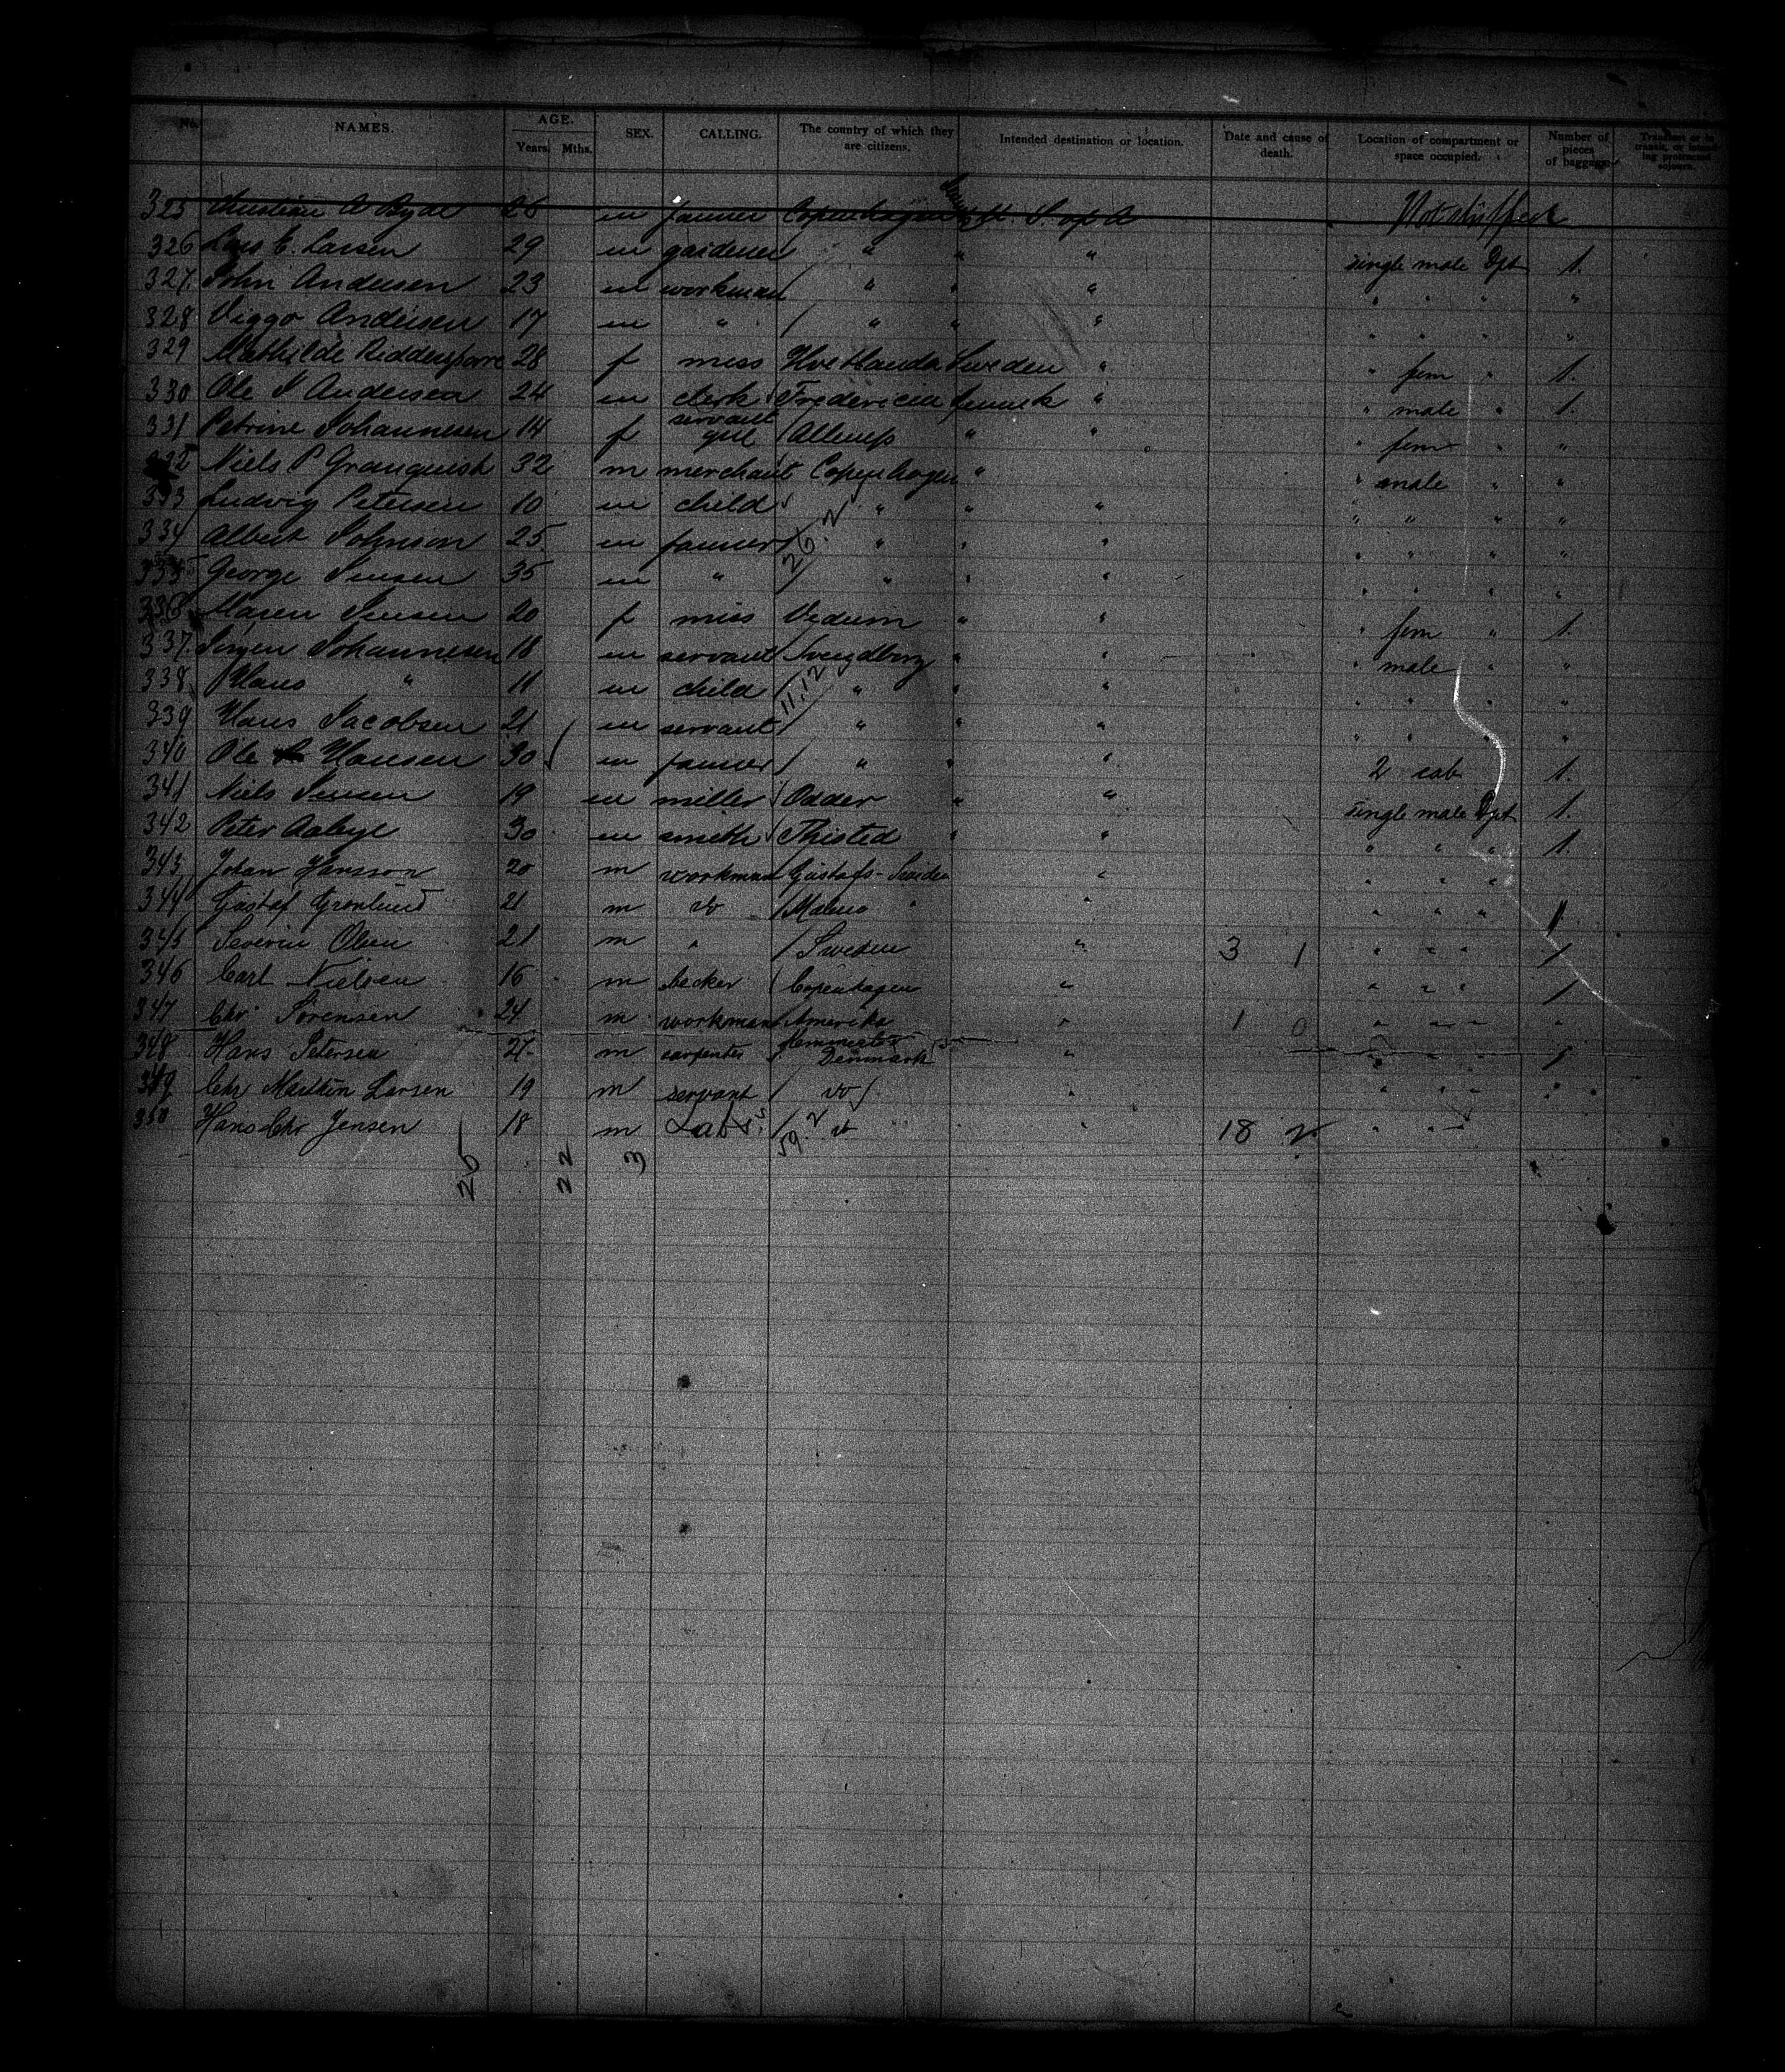 No. NAMES. AGE. Years. Mths. SEX. CALLING. The country of which they are citizens. Intended destination or location. Date and cause of death. Location of compartment or space occupied. Number of pieces of baggage Transient or in transit, or intending protracted sojourn.
325 Christian A Byde 26 m farmer Copenhagen U. S. of A Not shipped
326 Lars C. Larsen 29 m gardener " " " single male Dpt 1.
327. John Andersen 23 m workman " " " " " " "
328 Viggo Andersen 17 m " " " " " " " "
329 Mathilde Ridderspore 28 f miss Hvetlanda Sweden " " fem " 1.
330 Ole J Andersen 24 m clerk Fredericia Denmark " " male " 1.
331 Petrine Johannesen 14 f servant girl Allerup " " " fem " "
332 Niels P Granquist 32 m merchant Copenhagen " " male " "
333 Ludvig Petersen 10 m child " " " " " " "
334 Albert Johnson 25 m farmer 26.2 " " " " " " "
335 George Jensen 35 m " " " " " " " "
336 Maren Jensen 20 f miss Vedum " " " fem " 1.
337. Jörgen Johannesen 18 m servant Svendborg " " " male " "
338 Hans " 11 m child 11,12 " " " " " " "
339 Hans Jacobsen 21 m servant " " " " " " "
340 Ole Hansen 30 m farmer " " " 2 cab 1.
341 Niels Jensen 19 m miller Odder " " single male Dpt 1.
342 Peter 30 m smith Thisted " " " " " 1.
343 Johan Hansson 20 m workman Gustafs-Sweden " " " "
344 Gustaf Gronlund 21 m do Malmo " " " " " 1
345 Severin Olsen 21 m " Sweden " 3 1 " " " 1
346 Carl Nielsen 16 m becker Copenhagen " " " " 1
347 Chr Sorensen 24 m workman Amerika " 1 0 " " " "
348 Hans Petersen 27 m carpenter Denmark " " " " 1
349 Chr Martin Larsen 19 m servant do " " " " "
350 Hans Chr Jensen 18 m Labr. 59.2 do " 18 2 " " "
25 22 3